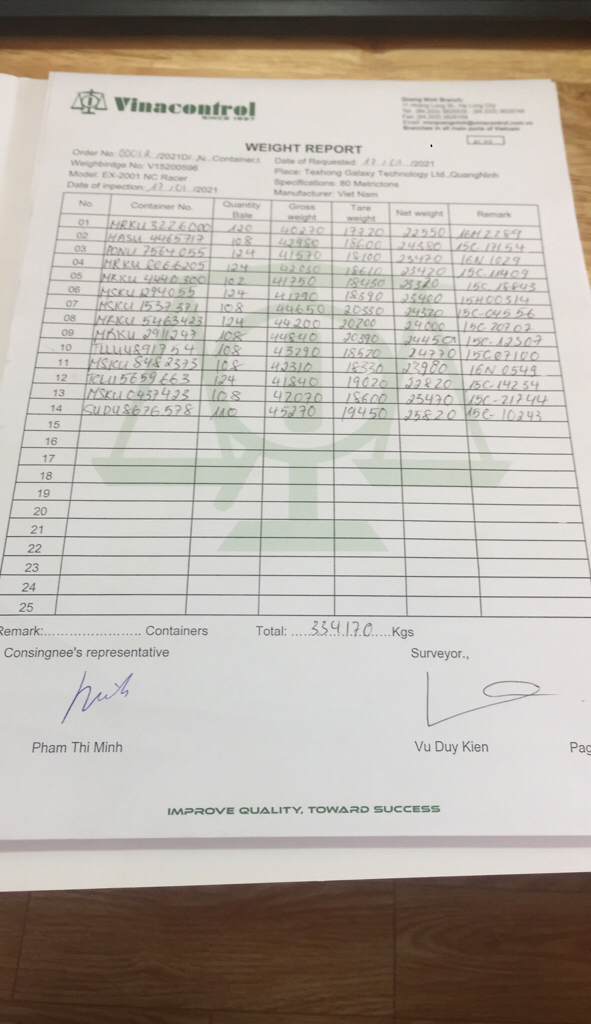 Vinacontrol
SINCE 1957
Quang Ninh Branch
Branches in all main ports of Vietnam
WEIGHT REPORT
Order No: /2021D/ Container.I
Date of Requested: 17 / /2021
Weighbridge No: V15200596
Place: Texhong Galaxy Technology Ltd.,QuangNinh
Model: EX-2001 NC Racer
Specifications: 80 Metrictons
Date of inpection: 17 / /2021
Manufacturer: Viet Nam
No. Container No. Quantity Bale Gross weight Tare weight Net weight Remark
01 MRKU 3226000 120 40270 17720 22550
02 MASU 4465717 108 42980 18600 24380 15C 17154
03 PONU 7564055 124 41570 18100 23470 16N 1029
04 MRKU 8066205 124 42030 18610 23420 15C 11909
05 MRKU 4440300 102 41750 18430 23320 15C 18843
06 MSKU 1294055 124 41790 18390 23400 15H00314
07 MSKU 1537371 108 44650 20330 24320 15C-04556
08 MRKU 5463423 124 44200 20200 24000 15C 20707
09 MRKU 2911247 108 44840 20390 24450 15C-12307
10 108 43290 18520 24770 15C07100
11 MSKU 8482373 108 42310 18330 23980 16N 0549
12 TCLU5659663 124 41840 19020 22820 15C-14234
13 MSKU 0437423 108 42070 18600 23470 15C-21744
14 SUDU8676578 110 45270 19450 25820 15C-10243
15
16
17
18
19
20
21
22
23
24
25
Remark:........................ Containers Total: .....334170.....Kgs
Consingnee's representative Surveyor.,
Pham Thi Minh Vu Duy Kien Pag
IMPROVE QUALITY, TOWARD SUCCESS